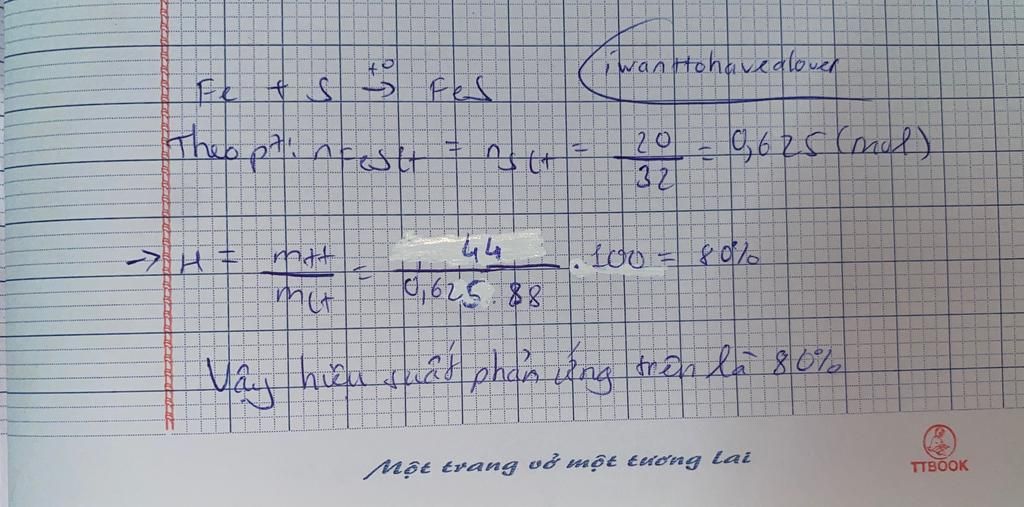 iwanttohavealover
Fe + S →t° FeS
Theo pt: nFeS lt = nS lt = 20/32 = 0,625 (mol)
→ H = mtt/mlt = 44/(0,625.88) . 100 = 80%
Vậy hiệu suất phản ứng trên là 80%
Một trang vở một tương lai
TTBOOK